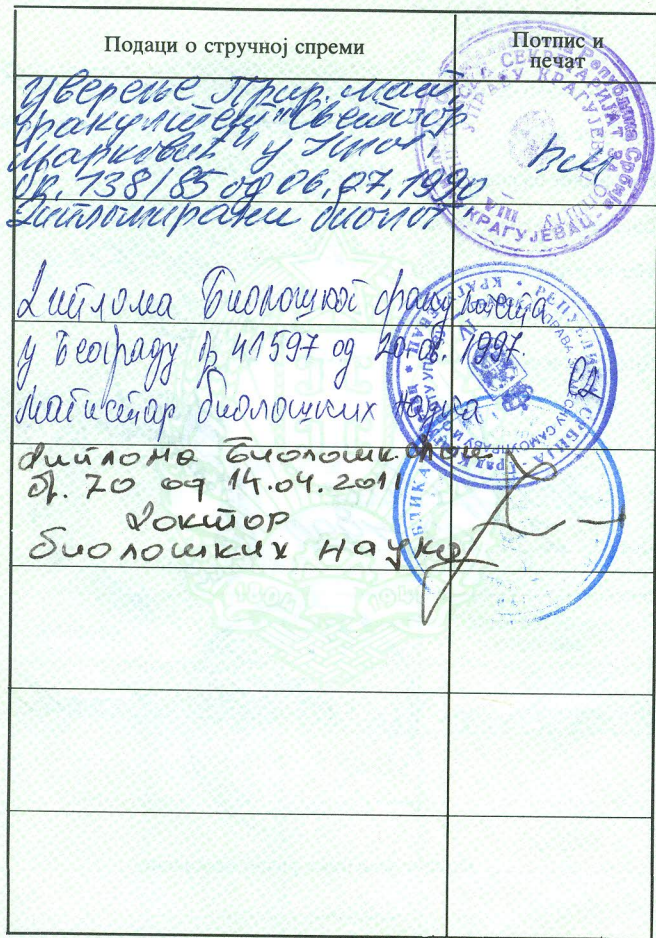 Подаци о стручној спреми
Потпис и
печат
Уверење Прир. мат.
факултет "Светозар
Марковић" у
бр. 138/85 од 06.07.1990
Дипломирани биолог
Диплома Биолошког факултета
у Београду бр 41597 од 1997.
магистар биолошких наука
Диплома Биолошк. фак.
бр. 70 од 14.04.2011
Доктор
биолошких наука